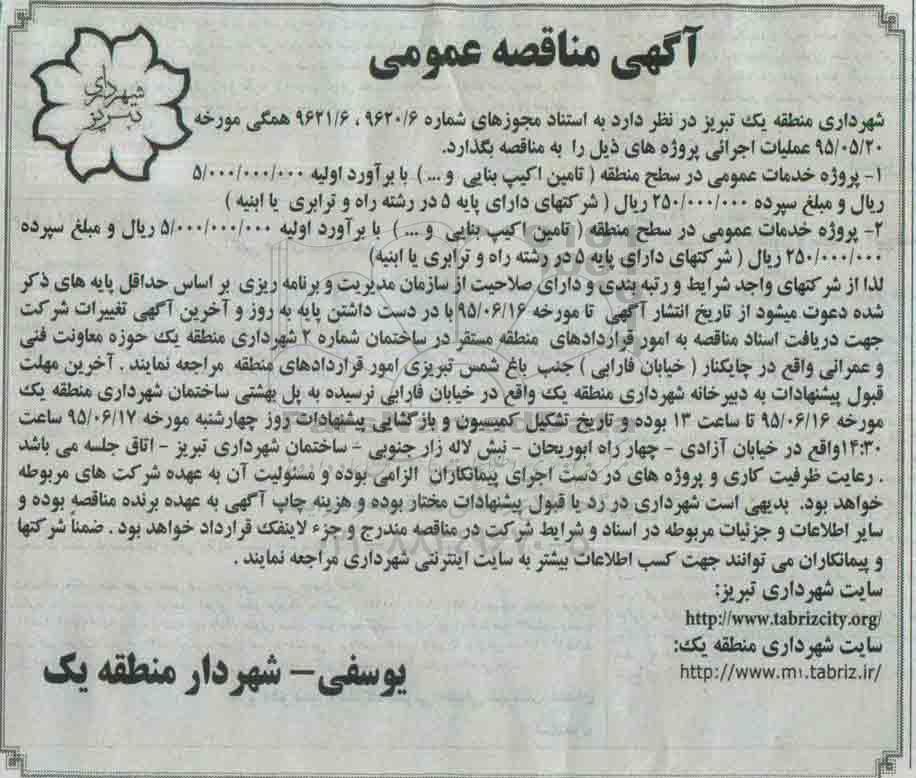 آگهی مناقصه عمومی
شهرداری تبریز
شهرداری منطقه یک تبریز در نظر دارد به استناد مجوزهای شماره ۹۶۲۰/۶ ، ۹۶۲۱/۶ همگی مورخه
۹۵/۰۵/۲۰ عملیات اجرائی پروژه های ذیل را به مناقصه بگذارد.
۱- پروژه خدمات عمومی در سطح منطقه ( تامین اکیپ بنایی و ... ) با برآورد اولیه ۵/۰۰۰/۰۰۰/۰۰۰
ریال و مبلغ سپرده ۲۵۰/۰۰۰/۰۰۰ ریال ( شرکتهای دارای پایه ۵ در رشته راه و ترابری یا ابنیه )
۲- پروژه خدمات عمومی در سطح منطقه ( تامین اکیپ بنایی و ... ) با برآورد اولیه ۵/۰۰۰/۰۰۰/۰۰۰ ریال و مبلغ سپرده
۲۵۰/۰۰۰/۰۰۰ ریال ( شرکتهای دارای پایه ۵ در رشته راه و ترابری یا ابنیه)
لذا از شرکتهای واجد شرایط و رتبه بندی و دارای صلاحیت از سازمان مدیریت و برنامه ریزی بر اساس حداقل پایه های ذکر
شده دعوت میشود از تاریخ انتشار آگهی تا مورخه ۹۵/۰۶/۱۶ با در دست داشتن پایه به روز و آخرین آگهی تغییرات شرکت
جهت دریافت اسناد مناقصه به امور قراردادهای منطقه مستقر در ساختمان شماره ۲ شهرداری منطقه یک حوزه معاونت فنی
و عمرانی واقع در چایکنار ( خیابان فارابی ) جنب باغ شمس تبریزی امور قراردادهای منطقه مراجعه نمایند . آخرین مهلت
قبول پیشنهادات به دبیرخانه شهرداری منطقه یک واقع در خیابان فارابی نرسیده به پل بهشتی ساختمان شهرداری منطقه یک
مورخه ۹۵/۰۶/۱۶ تا ساعت ۱۳ بوده و تاریخ تشکیل کمیسیون و بازگشایی پیشنهادات روز چهارشنبه مورخه ۹۵/۰۶/۱۷ ساعت
۱۴:۳۰واقع در خیابان آزادی - چهار راه ابوریحان - نبش لاله زار جنوبی - ساختمان شهرداری تبریز - اتاق جلسه می باشد
. رعایت ظرفیت کاری و پروژه های در دست اجرای پیمانکاران الزامی بوده و مسئولیت آن به عهده شرکت های مربوطه
خواهد بود. بدیهی است شهرداری در رد یا قبول پیشنهادات مختار بوده و هزینه چاپ آگهی به عهده برنده مناقصه بوده و
سایر اطلاعات و جزئیات مربوطه در اسناد و شرایط شرکت در مناقصه مندرج و جزء لاینفک قرارداد خواهد بود . ضمناً شرکتها
و پیمانکاران می توانند جهت کسب اطلاعات بیشتر به سایت اینترنتی شهرداری مراجعه نمایند .
سایت شهرداری تبریز:
http://www.tabrizcity.org/
سایت شهرداری منطقه یک:
http://www.m۱.tabriz.ir/
یوسفی - شهردار منطقه یک